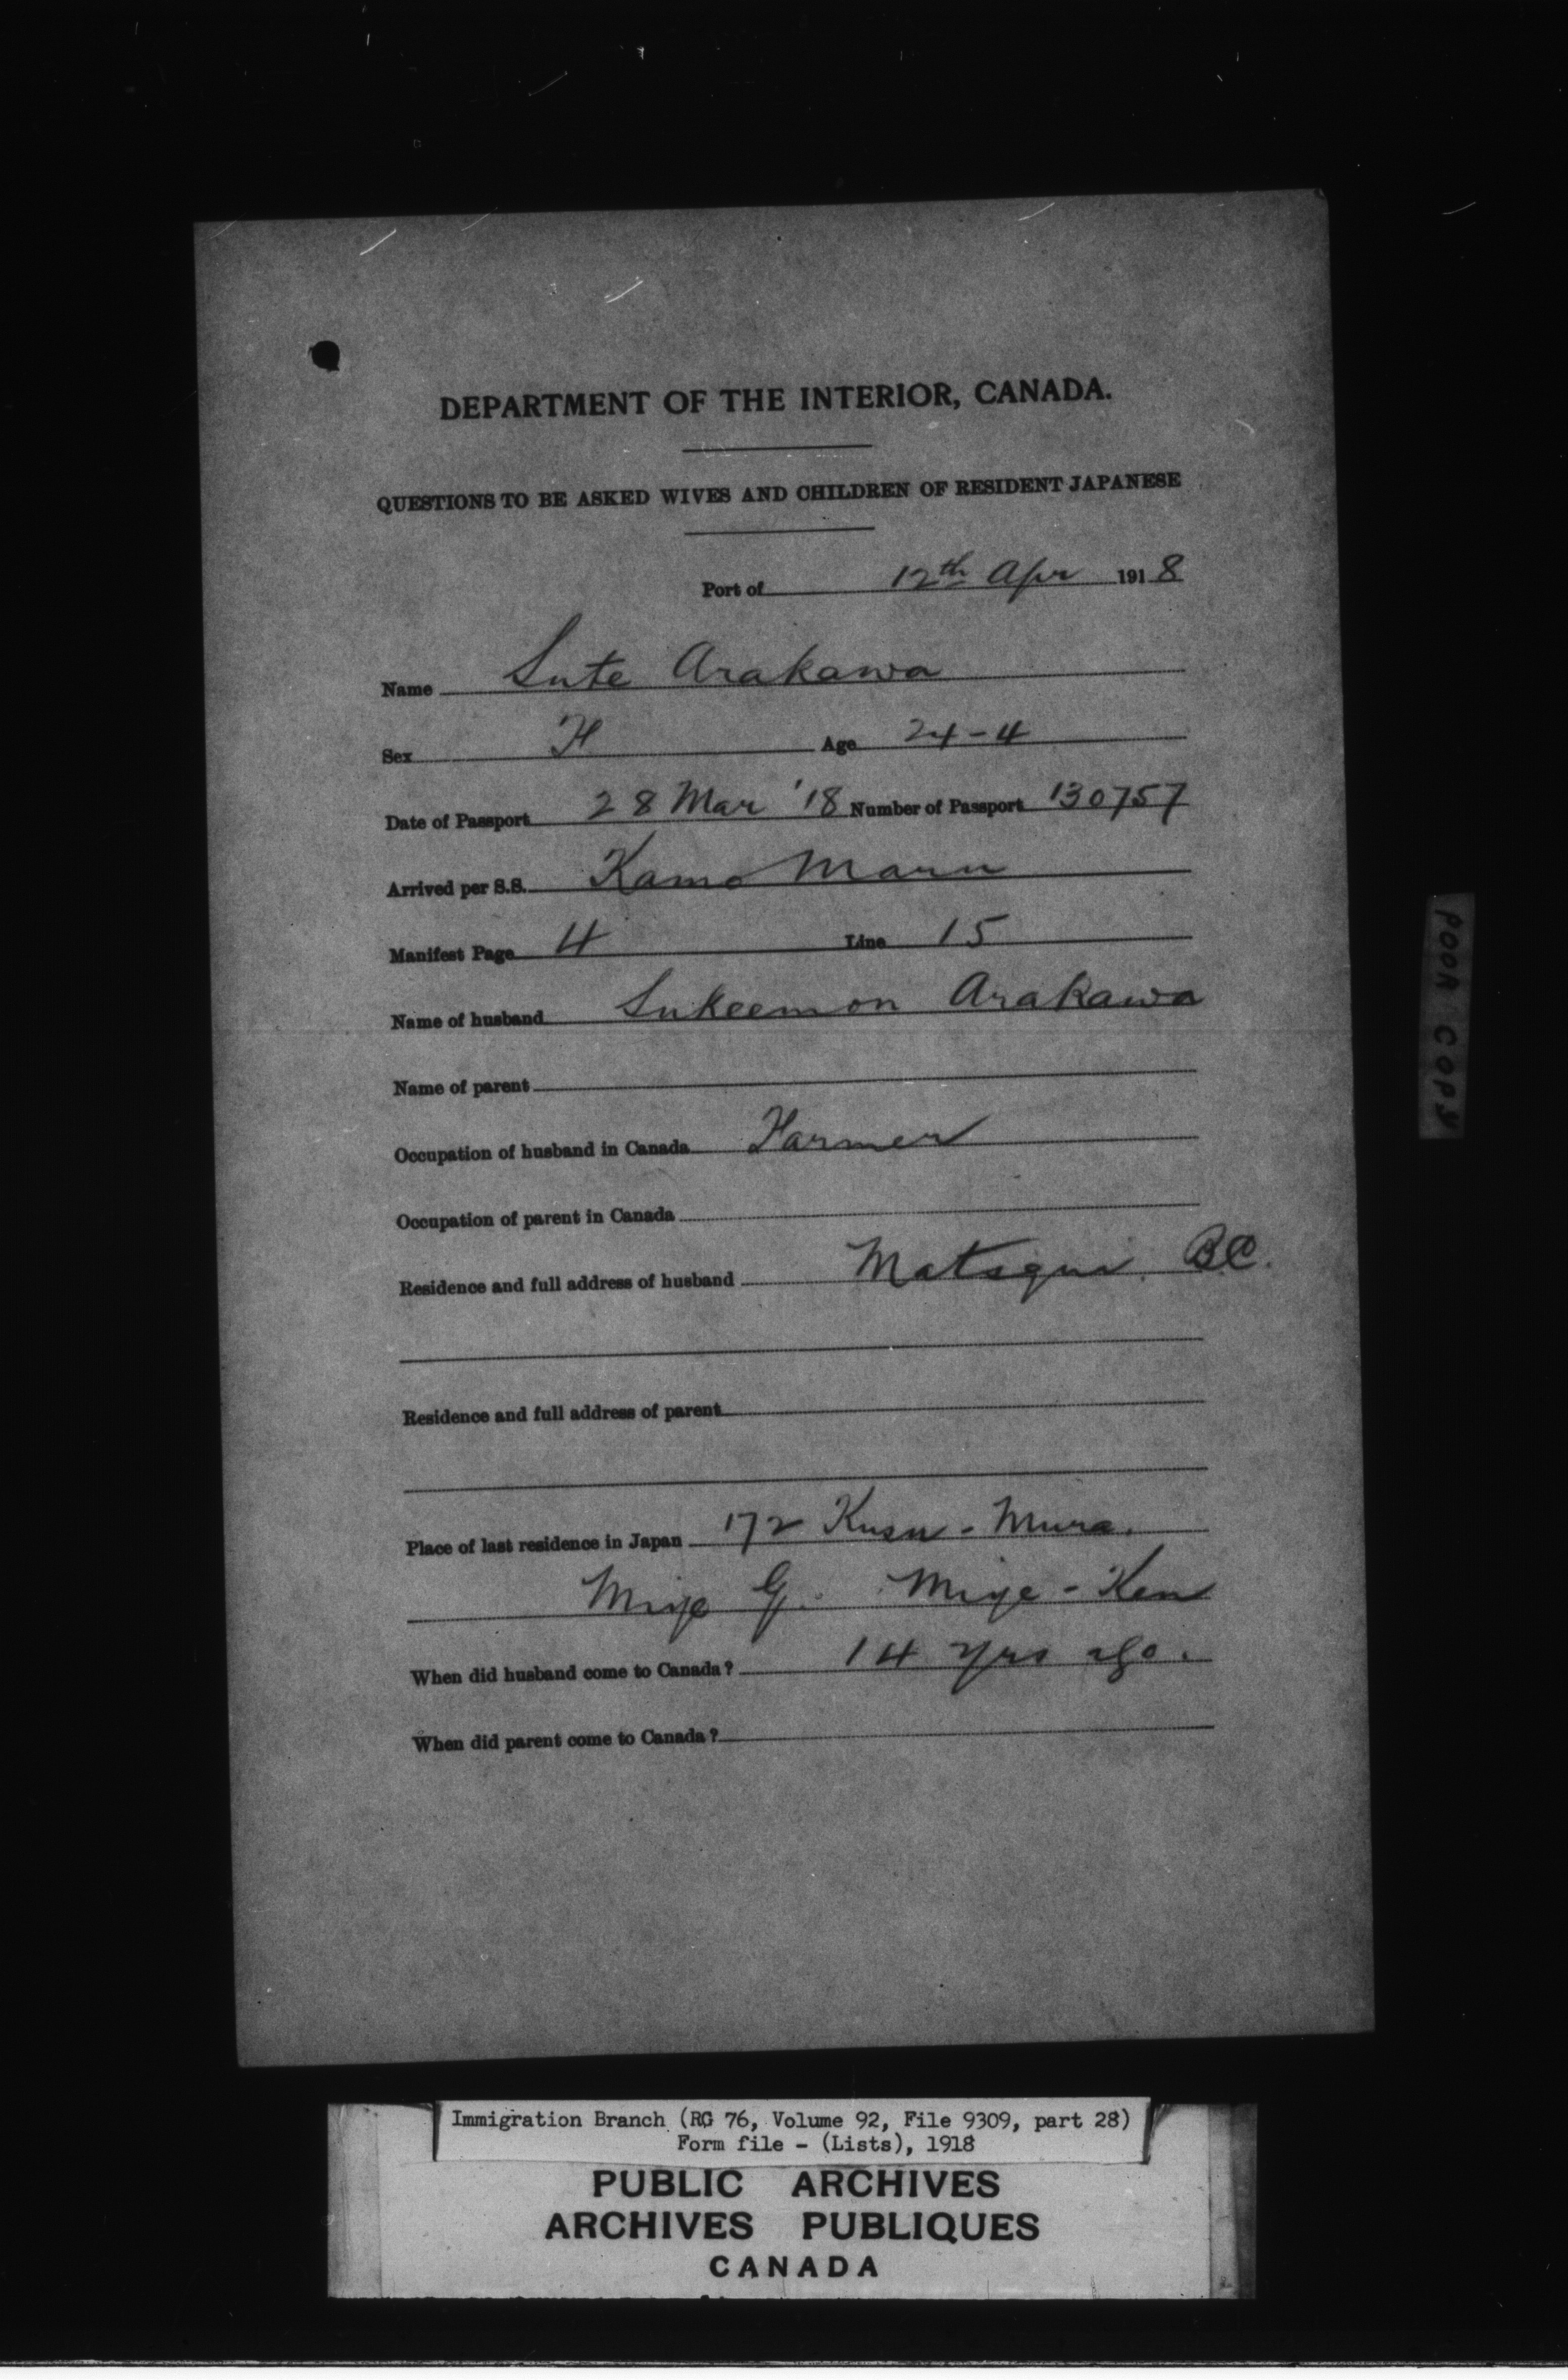 DEPARTMENT OF THE INTERIOR, CANADA.
QUESTIONS TO BE ASKED WIVES AND CHILDREN OF RESIDENT JAPANESE
Port of 12th Apr 1918
Name Sute Arakawa
Sex F Age 24-4
Date of Passport 28 Mar '18 Number of Passport 130757
Arrived per S.S. Kamo Maru
Manifest Page 4 Line 15
Name of husband Sukeemon Arakawa
Name of parent
Occupation of husband in Canada Farmer
Occupation of parent in Canada
Residence and full address of husband Matsqui. B.C.
Residence and full address of parent
Place of last residence in Japan 172 Kusu-Mura.
Miye G. Miye-Ken
When did husband come to Canada? 14 yrs ago.
When did parent come to Canada?
POOR COPY
Immigration Branch (RG 76, Volume 92, File 9309, part 28)
Form file - (Lists), 1918
PUBLIC ARCHIVES
ARCHIVES PUBLIQUES
CANADA